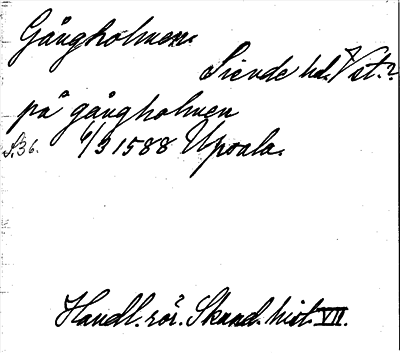 Gångholmen.
Siende hd. Vst.?
på gångholmen
S.36. 6/3 1588 Upsala.
Handl. rör. Skand. hist. VII.